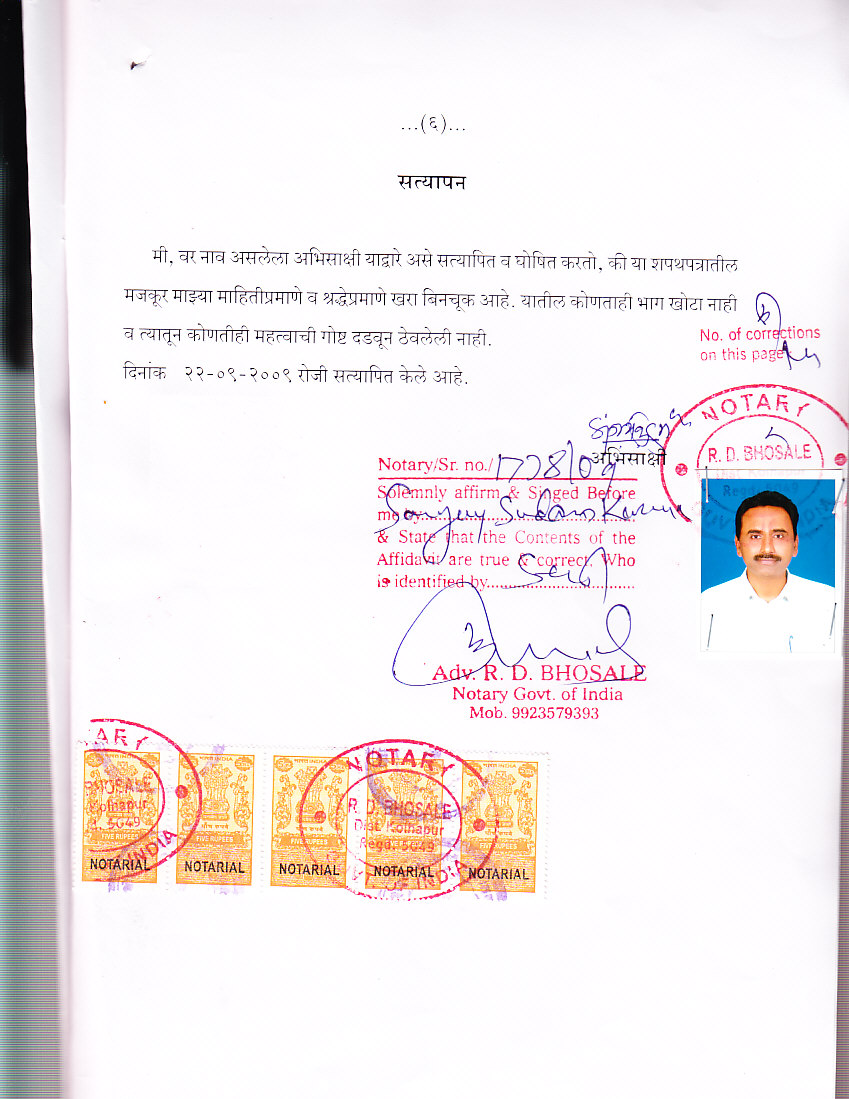 ...(६)...
सत्यापन
मी, वर नाव असलेला अभिसाक्षी याद्वारे असे सत्यापित व घोषित करतो, की या शपथपत्रातील
मजकूर माझ्या माहितीप्रमाणे व श्रद्धेप्रमाणे खरा बिनचूक आहे. यातील कोणताही भाग खोटा नाही
व त्यातून कोणतीही महत्वाची गोष्ट दडवून ठेवलेली नाही.
दिनांक २२-०९-२००९ रोजी सत्यापित केले आहे.
No. of corrections
on this page
अभिसाक्षी
NOTARY
R. D. BHOSALE
Notary/Sr. no./1778/09
Solemnly affirm & Singed Before
me by
& State that the Contents of the
Affidavit are true & correct. Who
is identified by Self
Adv. R. D. BHOSALE
Notary Govt. of India
Mob. 9923579393
NOTARY
R. D. BHOSALE
Dist. Kolhapur
Regd. 5649
GOVT. OF INDIA
ARY
BHOSALE
Kolhapur
5649
INDIA
FIVE RUPEES
FIVE RUPEES
FIVE RUPEES
FIVE RUPEES
NOTARIAL
NOTARIAL
NOTARIAL
NOTARIAL
NOTARIAL